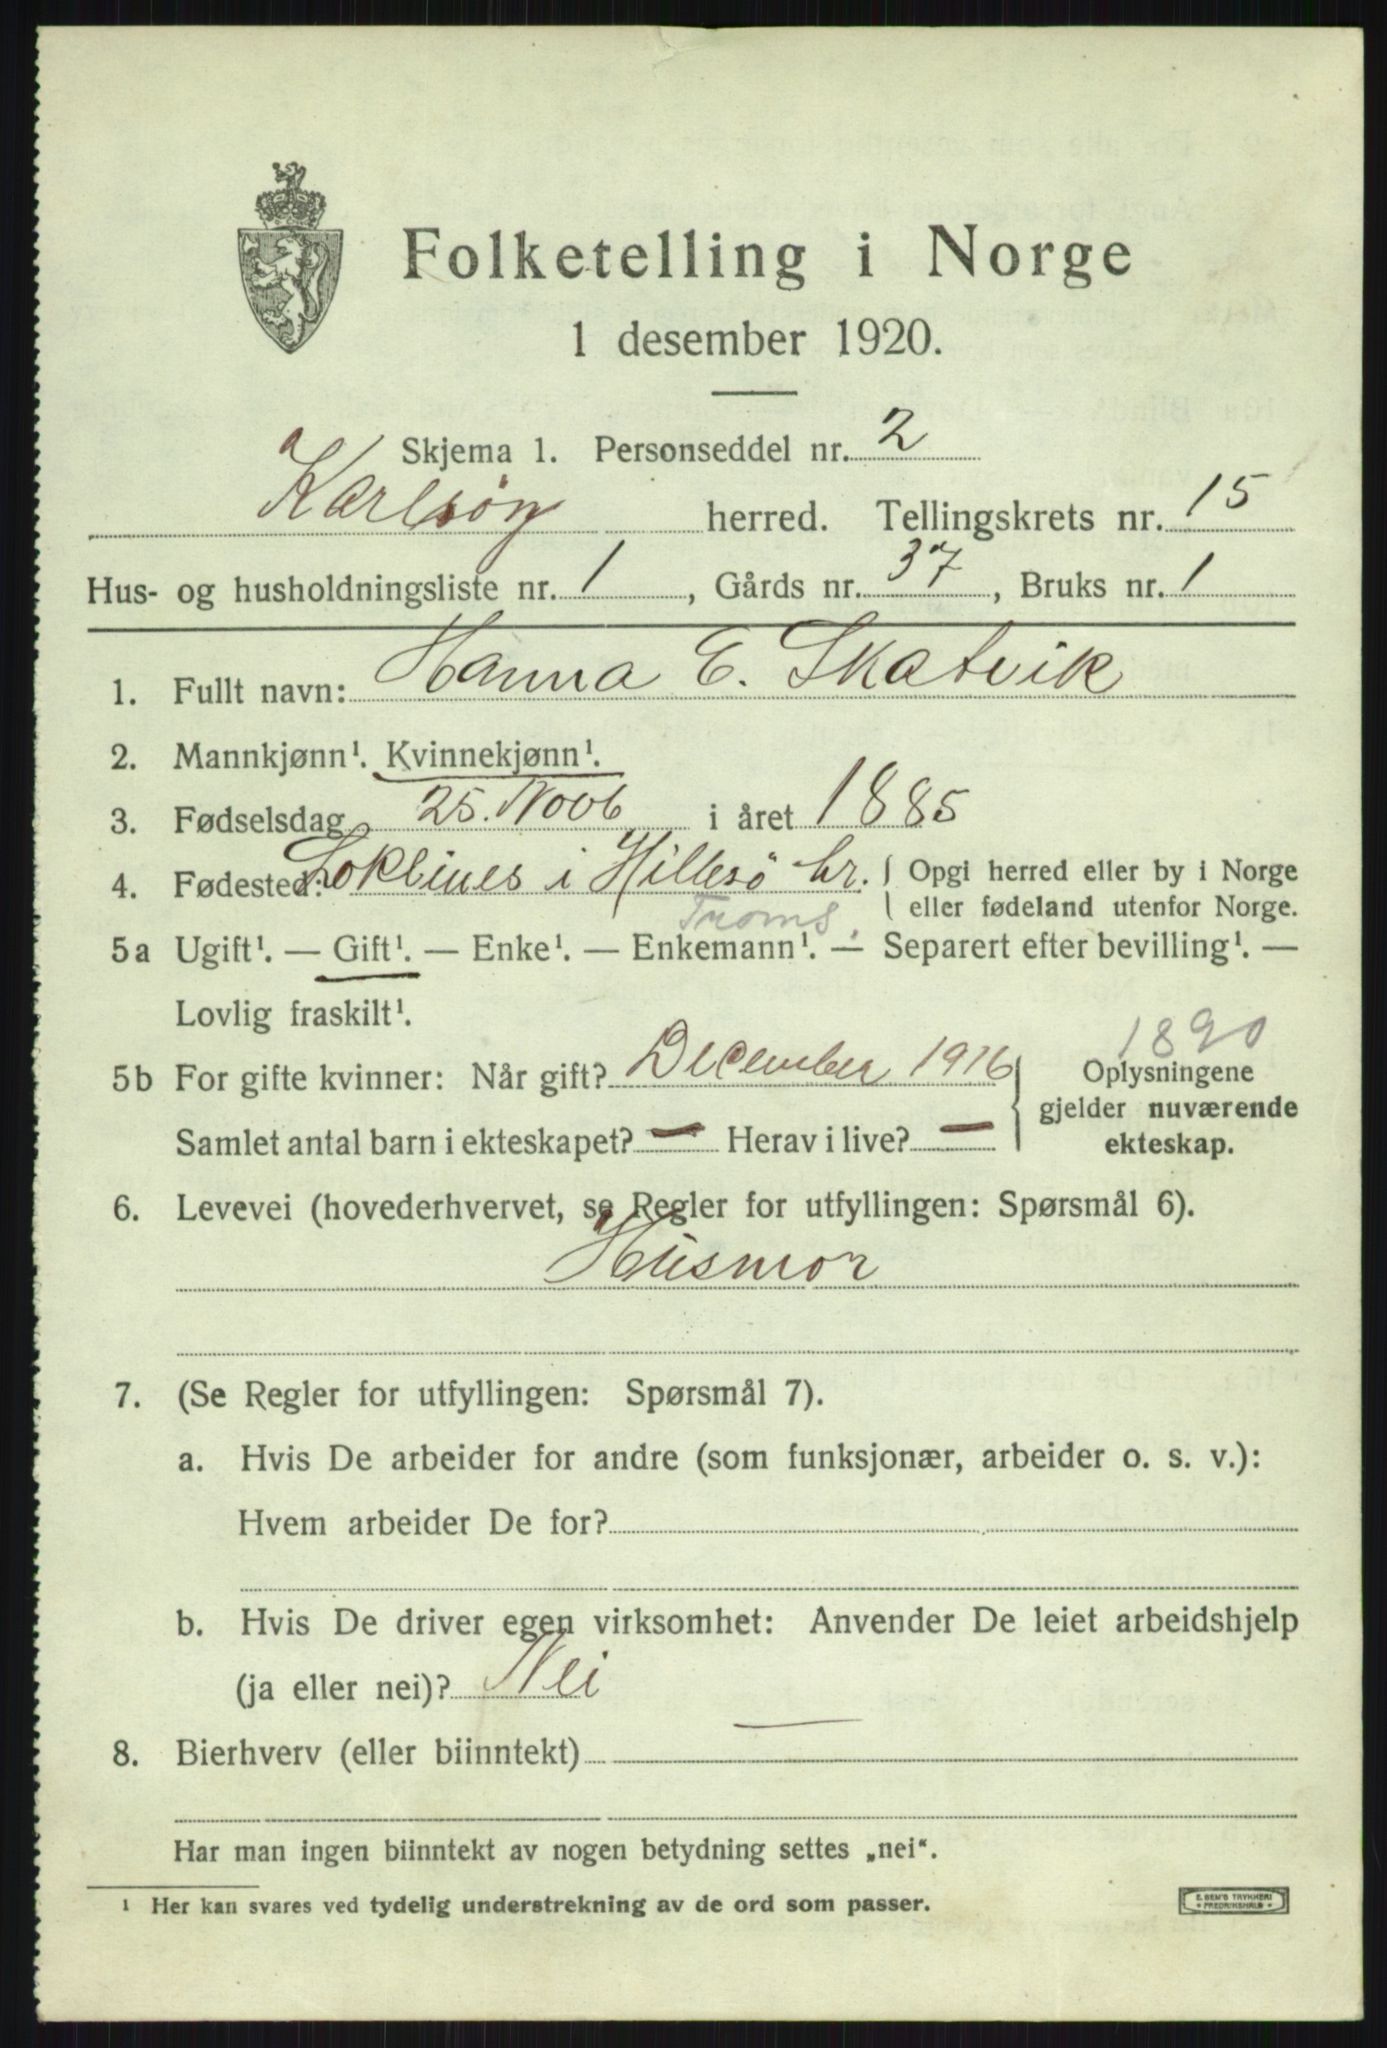 Folketelling i Norge
1 desember 1920.
Skjema 1. Personseddel nr. 2
Karlsöy herred. Tellingskrets nr. 15
Hus- og husholdningsliste nr. 1, Gårds nr. 37, Bruks nr. 1
1. Fullt navn: Hanna E. Skatvik
2. Mannkjønn¹. Kvinnekjønn¹.
3. Fødselsdag 25. Novb i året 1885
4. Fødested: i Hillesö hr. { Opgi herred eller by i Norge
eller fødeland utenfor Norge.
Troms.
5a Ugift¹. — Gift¹. — Enke¹. — Enkemann¹. — Separert efter bevilling¹. —
Lovlig fraskilt¹.
1890
5b For gifte kvinner: Når gift? December 1916 } Oplysningene
gjelder nuværende
Samlet antal barn i ekteskapet? — Herav i live? — ekteskap.
6. Levevei (hovederhvervet, se Regler for utfyllingen: Spørsmål 6).
Husmor
7. (Se Regler for utfyllingen: Spørsmål 7).
a. Hvis De arbeider for andre (som funksjonær, arbeider o. s. v.):
Hvem arbeider De for?
b. Hvis De driver egen virksomhet: Anvender De leiet arbeidshjelp
(ja eller nei)? Nei
8. Bierhverv (eller biinntekt) —
Har man ingen biinntekt av nogen betydning settes „nei“.
¹ Her kan svares ved tydelig understrekning av de ord som passer.
E. SEM'S TRYKKERI
FREDRIKSHALD